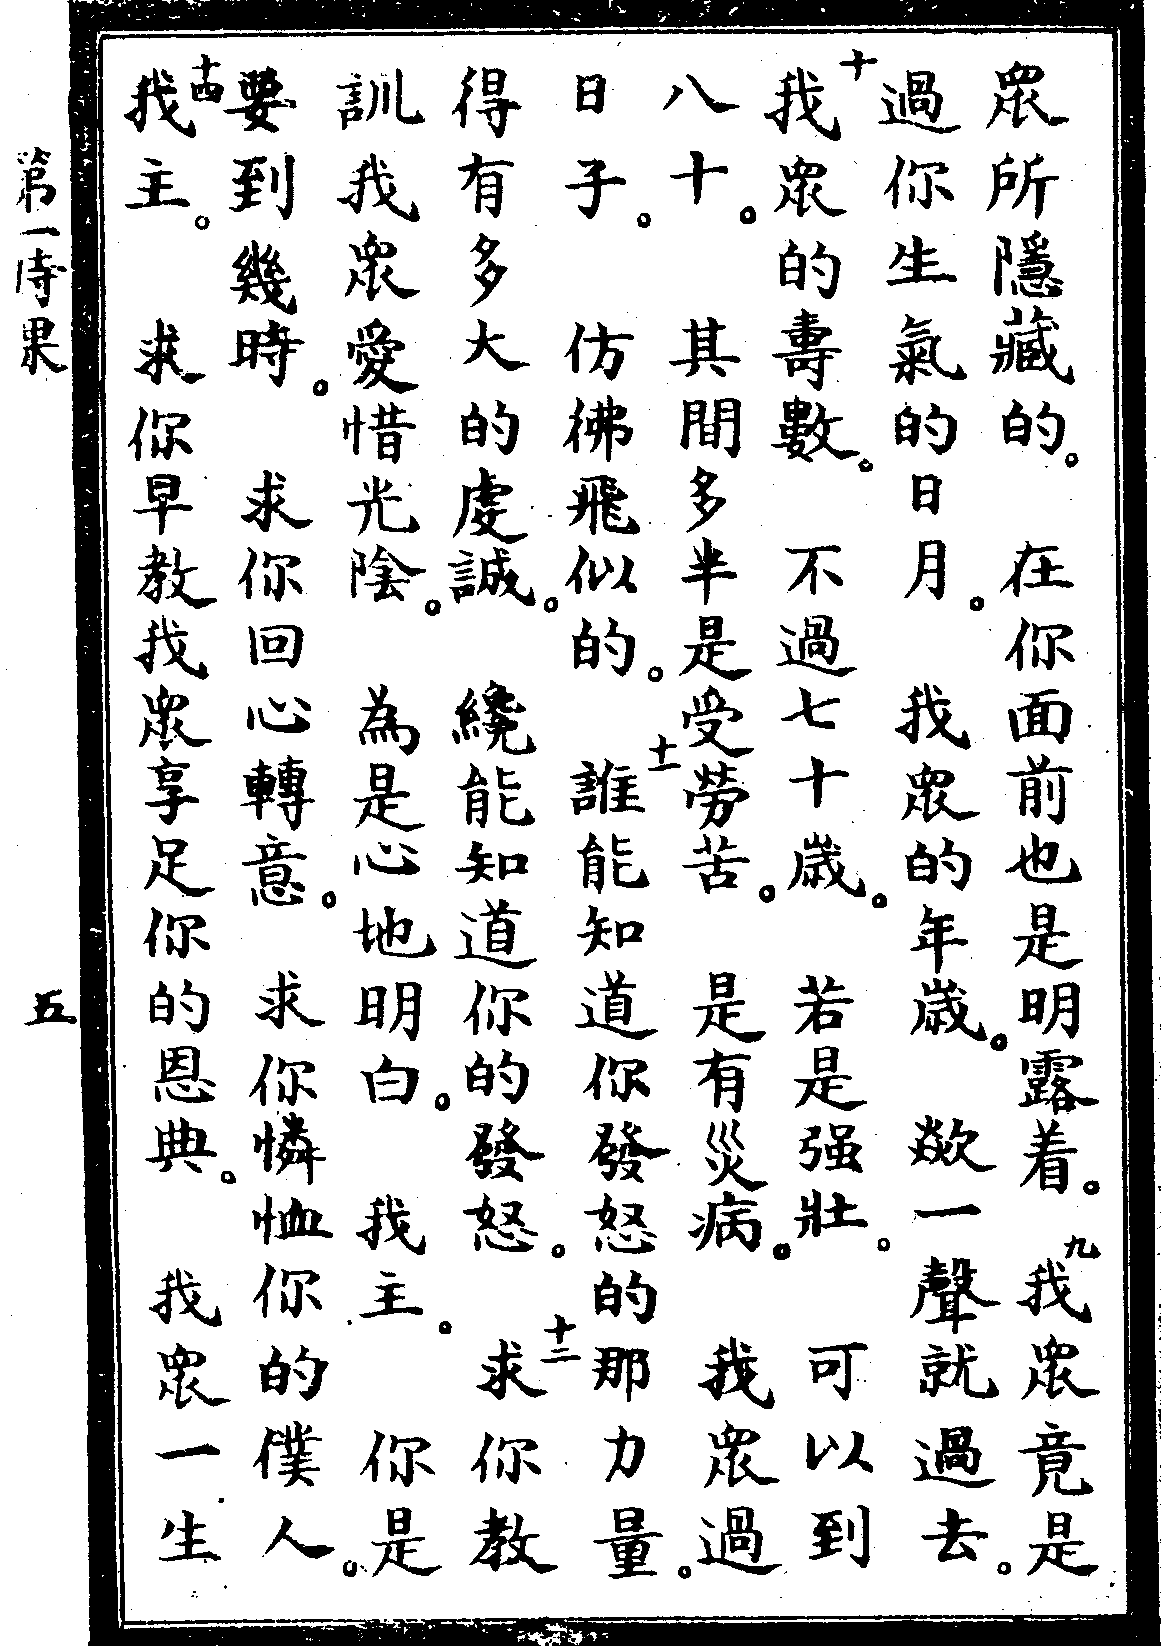 眾所隱藏的。在你面前也是明露着。九我眾竟是
過你生氣的日月。我眾的年歲。歘一聲就過去。
十我眾的壽數。不過七十歲。若是强壯。可以到
八十。其間多半是受勞苦。是有災病。我眾過
日子。仿彿飛似的。十一誰能知道你發怒的那力量。
得有多大的虔誠。纔能知道你的發怒。十二求你教
訓我眾愛惜光陰。為是心地明白。我主。你是
要到幾時。求你回心轉意。求你憐恤你的僕人。
十四我主。求你早教我眾享足你的恩典。我眾一生
第一時課 五